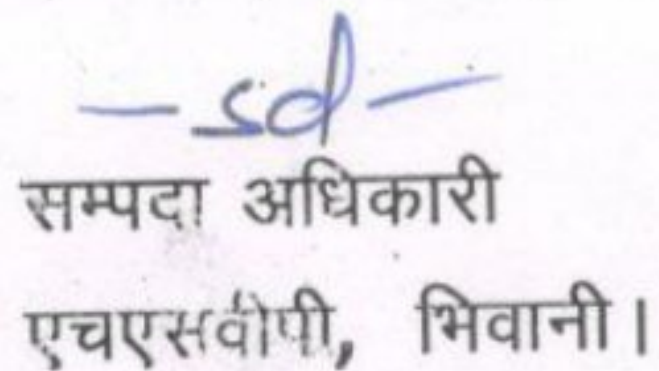 -sd-
सम्पदा अधिकारी
एचएसवीपी, भिवानी।